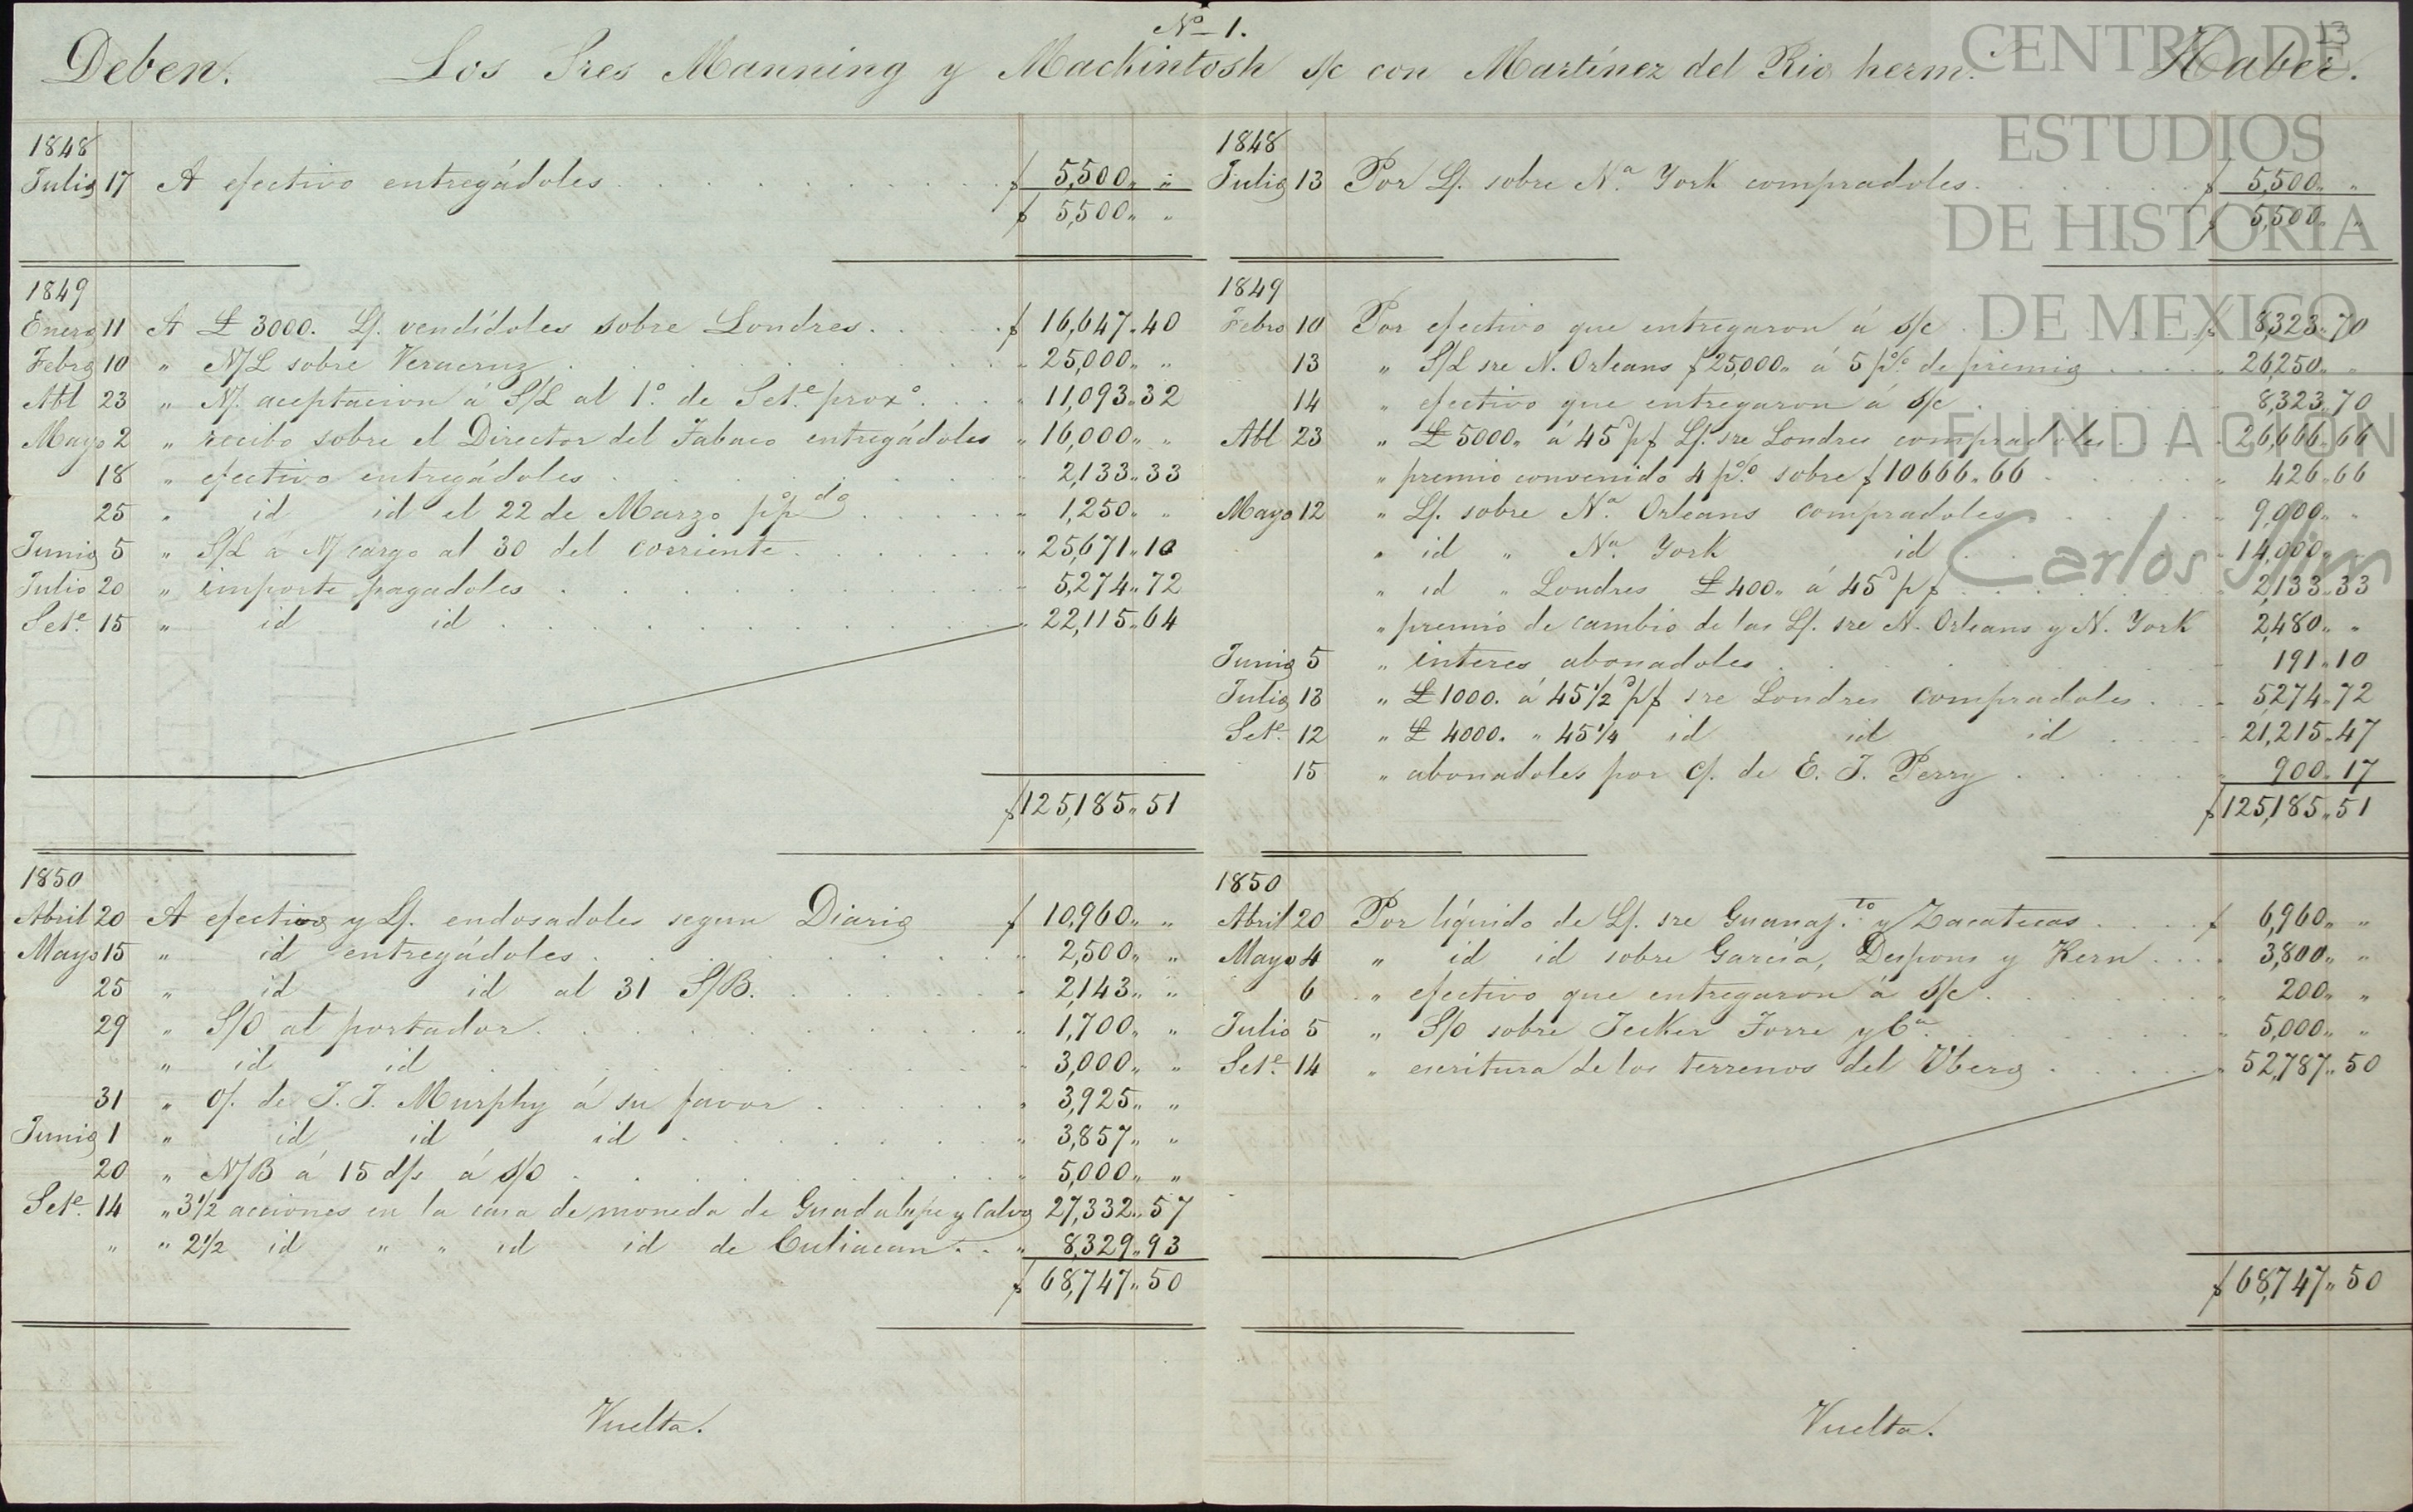 Nº 1.
13
Deben. Los Sres Manning y Mackintosh s/c con Martínez del Rio herm.s Haber.
1848
Julio 17 A efectivo entregádoles $ 5,500,, ,,
$ 5,500,, ,,
1849
Enero 11 A £ 3000. L/. vendídoles sobre Londres $ 16,647,,40
Febro 10 ,, N/L sobre Veracruz ,, 25,000,, ,,
Abl 23 ,, N/. aceptacion á S/L al 1º. de Set.e prox.º ,, 11,093,,32
Mayo 2 ,, recibo sobre el Director del Tabaco entregádoles ,, 16,000,, ,,
18 ,, efectivo entregádoles ,, 2,133,,33
25 ,, id id el 22 de Marzo pºpdo ,, 1,250,, ,,
Junio 5 ,, S/L á N/ cargo al 30 del corriente ,, 25,671,,10
Julio 20 ,, importe pagadoles ,, 5,274,,72
Set.e 15 ,, id id ,, 22,115,,64
$125,185,,51
1850
Abril 20 A efectivo y L/. endosadoles segun Diario $ 10,960,, ,,
Mayo 15 ,, id entregádoles ,, 2,500,, ,,
25 ,, id id al 31 S/B. ,, 2,143,, ,,
29 ,, S/O al portador ,, 1,700,, ,,
,, id id ,, 3,000,, ,,
31 ,, O/. de J. J. Murphy á su favor ,, 3,925,, ,,
Junio 1 ,, id id id ,, 3,857,, ,,
20 ,, N/B á 15 d/s á s/o ,, 5,000,, ,,
Set.e 14 ,, 3 1/2 acciones en la casa de moneda de Guadalupe y Calvo 27,332,,57
,, ,, 2 1/2 id ,, ,, id id de Culiacan ,, 8,329,,93
$ 68,747,,50
Vuelta.
1848
Julio 13 Por L/. sobre N.a York compradoles $ 5,500,, ,,
$ 5,500,, ,,
1849
Febro 10 Por efectivo que entregaron á s/c $ 8,323,,70
13 ,, S/L sre N. Orleans $25,000,, á 5 p% de premio ,, 26,250,, ,,
14 ,, efectivo que entregaron á s/c ,, 8,323,,70
Abl 23 ,, £ 5000,, á 45 d p$ L/. sre Londres compradoles ,, 26,666,,66
,, premio convenido 4 p% sobre $10666,,66 ,, 426,,66
Mayo 12 ,, L/. sobre N.a Orleans compradoles ,, 9,000,, ,,
,, id ,, N.a York id ,, 14,000,, ,,
,, id ,, Londres £ 400,, á 45 d p$ ,, 2,133,,33
,, premio de cambio de las L/. sre N. Orleans y N. York 2,480,, ,,
Junio 5 ,, interes abonadoles ,, 191,,10
Julio 13 ,, £ 1000. á 45 1/2 d p$ sre Londres compradoles ,, 5,274,,72
Set.e 12 ,, £ 4000. ,, 45 1/4 id id id ,, 21,215,,47
15 ,, abonadoles por c/. de E. J. Perry ,, 900,,17
$125,185,,51
1850
Abril 20 Por líquido de L/. sre Guanaj.to y Zacatecas $ 6,960,, ,,
Mayo 4 ,, id id sobre García, Despons y Kern ,, 3,800,, ,,
6 ,, efectivo que entregaron á s/c ,, 200,, ,,
Julio 5 ,, S/O sobre Jecker Torre y C.a ,, 5,000,, ,,
Set.e 14 ,, escritura de los terrenos del Ybero ,, 52,787,,50
$ 68,747,,50
Vuelta.
CENTRO DE
ESTUDIOS
DE HISTORIA
DE MEXICO
FUNDACIÓN
Carlos Slim